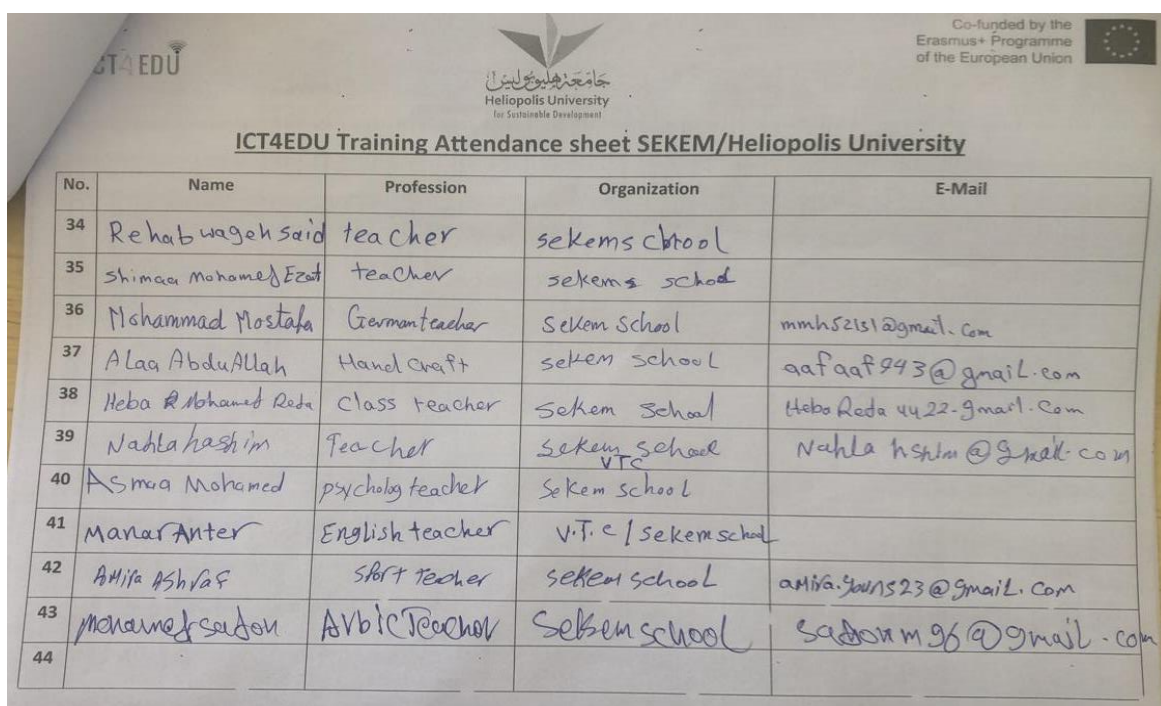 ICT4EDU
جامعة هليوبوليس
Heliopolis University
for Sustainable Development
Co-funded by the
Erasmus+ Programme
of the European Union
ICT4EDU Training Attendance sheet SEKEM/Heliopolis University
No. Name Profession Organization E-Mail
34 Rehab wageh said teacher sekem school
35 Shimaa Mohamed Ezat teacher sekems school
36 Mohammad Mostafa German teacher Sekem School mmh52151@gmail.com
37 Alaa AbduAllah Hand craft sekem school aafaaf943@gmail.com
38 Heba R Mohamed Reda Class teacher Sekem School HebaReda4422-gmail.com
39 Nahla hashim Teacher sekem school
VTC
40 Asmaa Mohamed psycholog teacher Sekem school
41 Manar Anter English teacher V.T.C / sekem school
42 Amira Ashraf Sport Teacher sekem school amira.youns23@gmail.com
43 mohamed sadon Arbic Teacher Sekem school sadonm96@gmail.com
44